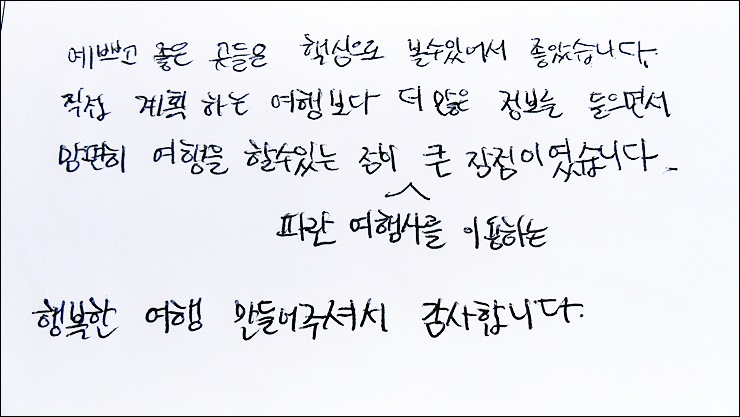 예쁘고 좋은 곳들을 핵심으로 볼수있어서 좋았습니다.
직접 계획 하는 여행보다 더 많은 정보를 들으면서
맘편히 여행을 할수있는 점이 큰 장점이였습니다.
파란 여행사를 이용하는
행복한 여행 만들어주셔서 감사합니다.